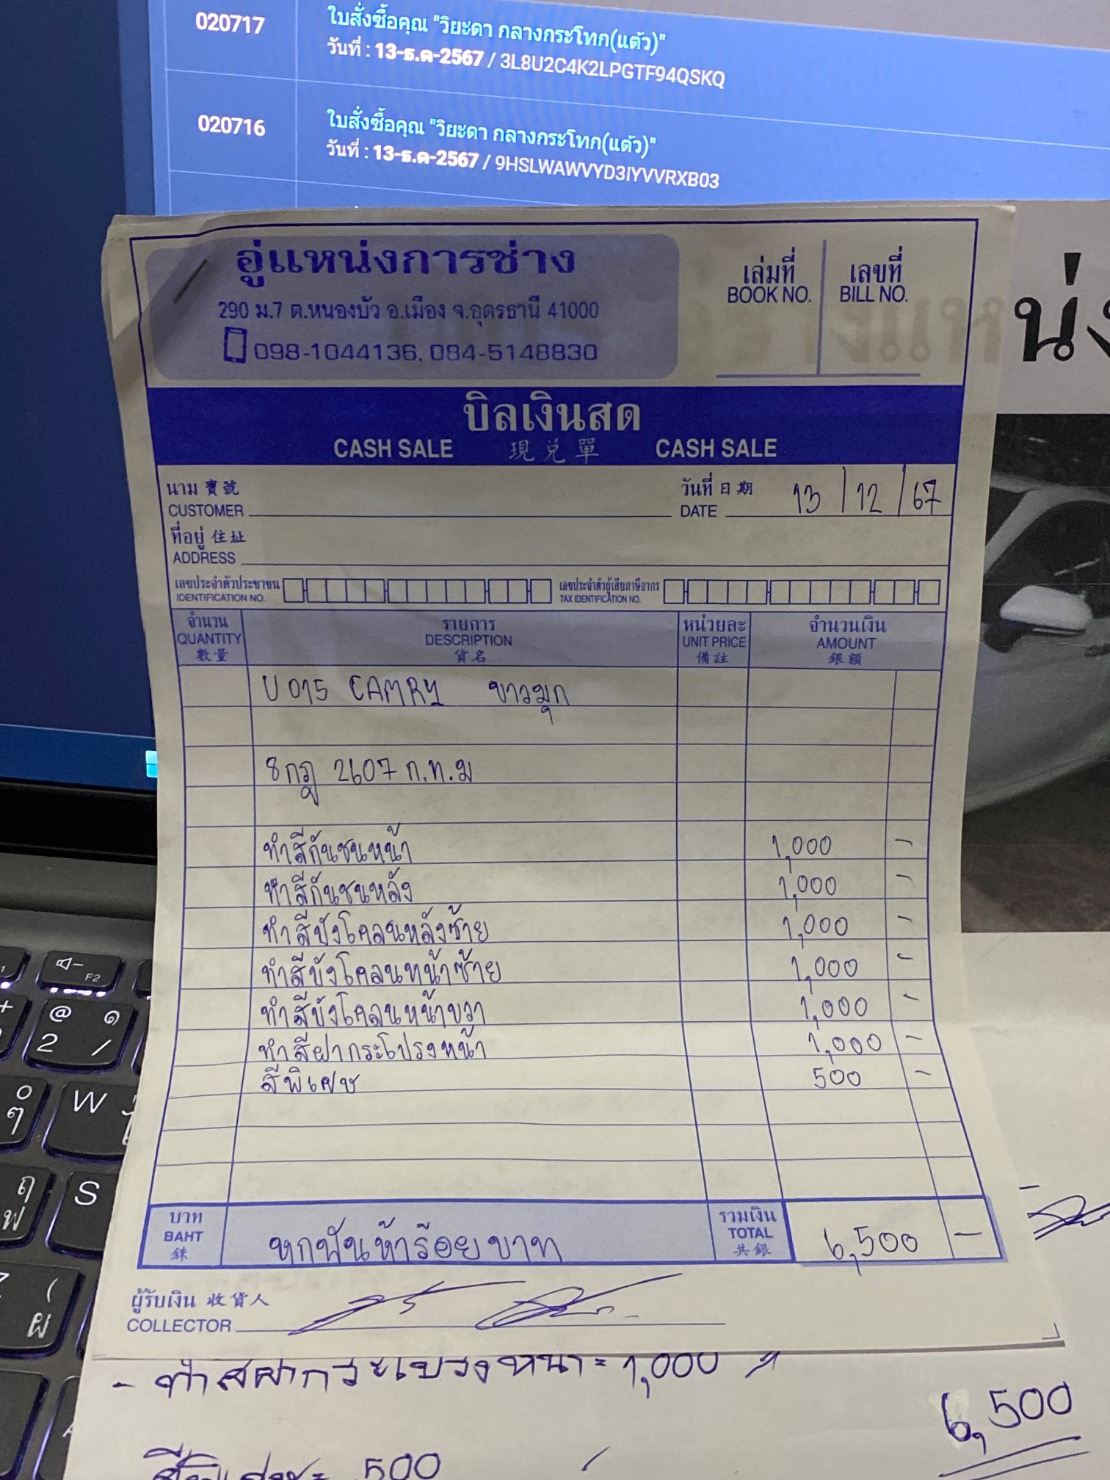 020717
ใบสั่งซื้อคุณ "วิยะดา กลางกระโทก(แต้ว)"
วันที่ : 13-ธ.ค-2567 / 3L8U2C4K2LPGTF94QSKQ
020716
ใบสั่งซื้อคุณ "วิยะดา กลางกระโทก(แต้ว)"
วันที่ : 13-ธ.ค-2567 / 9HSLWAWVYD3IYVVRXB03
อู่แหน่งการช่าง
290 ม.7 ต.หนองบัว อ.เมือง จ.อุดรธานี 41000
098-1044136, 084-5148830
เล่มที่ เลขที่
BOOK NO. BILL NO.
น่ง
บิลเงินสด
CASH SALE 現兌單 CASH SALE
นาม 寳號 วันที่ 日期
CUSTOMER DATE 13/12/67
ที่อยู่ 住址
ADDRESS
เลขประจำตัวประชาชน เลขประจำตัวผู้เสียภาษีอากร
IDENTIFICATION NO. TAX IDENTIFICATION NO.
จำนวน รายการ หน่วยละ จำนวนเงิน
QUANTITY DESCRIPTION UNIT PRICE AMOUNT
數量 貨名 備註 銀額
U015 CAMRY ขาวมุก
8กฎ 2607 ก.ท.ม
ทำสีกันชนหน้า 1,000 -
ทำสีกันชนหลัง 1,000 -
ทำสีบังโคลนหลังซ้าย 1,000 -
ทำสีบังโคลนหน้าซ้าย 1,000 -
ทำสีบังโคลนหน้าขวา 1,000 -
ทำสีฝากระโปรงหน้า 1,000 -
สีพิเศษ 500 -
บาท รวมเงิน
BAHT หกพันห้าร้อยบาท TOTAL 6,500 -
銖 共銀
ผู้รับเงิน 收貨人
COLLECTOR
- ทำสีฝากระโปรงหน้า = 1,000
6,500
สีพิเศษ = 500
F2
@ ๑
2 /
W
S
ฤ
ฟ
(
ผ